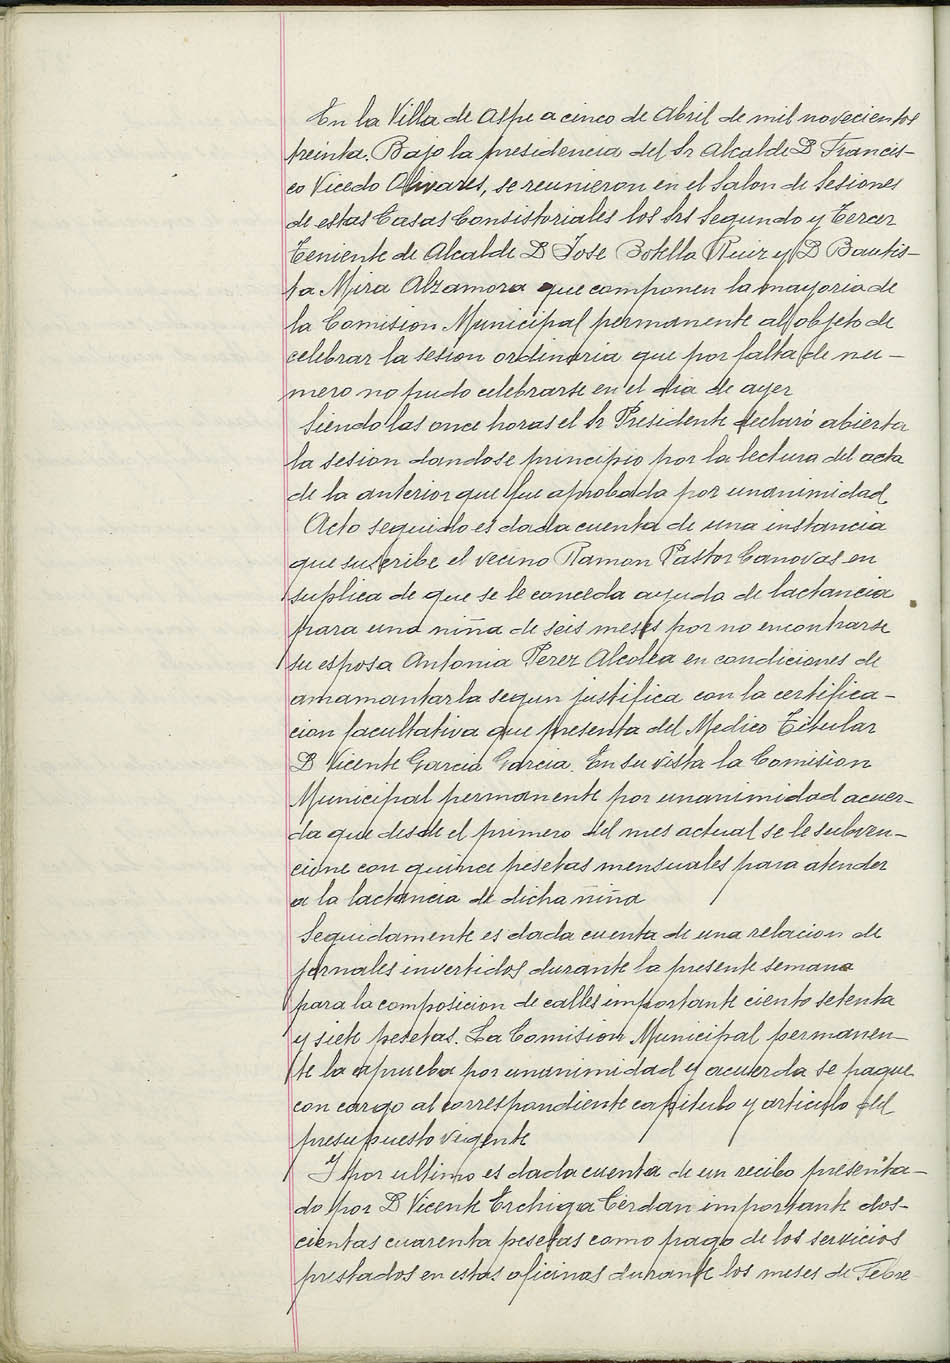 En la Villa de Aspe a cinco de Abril de mil novecientos
treinta. Bajo la presidencia del Sr Alcalde D Francis-
co Vicedo Olivares, se reunieron en el Salon de Sesiones
de estas Casas Consistoriales los Srs Segundo y Tercer
Teniente de Alcalde D Jose Botella Ruiz y D Bautis-
ta Mira Alzamora que componen la mayoria de
la Comision Municipal permanente al objeto de
celebrar la sesion ordinaria que por falta de nu-
mero no pudo celebrarse en el dia de ayer
Siendo las once horas el Sr Presidente declaró abierta
la sesion dandose principio por la lectura del acta
de la anterior que fue aprobada por unanimidad
Acto seguido es dada cuenta de una instancia
que suscribe el vecino Ramon Pastor Canovas en
suplica de que se le conceda ayuda de lactancia
para una niña de seis meses por no encontrarse
su esposa Antonia Perez Alcolea en condiciones de
amamantarla segun justifica con la certifica-
cion facultativa que presenta del Medico Titular
D Vicente Garcia Garcia. En su vista la Comision
Municipal permanente por unanimidad acuer-
da que desde el primero del mes actual se le subven-
cione con quince pesetas mensuales para atender
a la lactancia de dicha niña
Seguidamente es dada cuenta de una relacion de
jornales invertidos durante la presente semana
para la composicion de calles importante ciento setenta
y siete pesetas. La Comision Municipal permanen-
te la aprueba por unanimidad y acuerda se pague
con cargo al correspondiente capitulo y articulo del
presupuesto vigente
Y por ultimo es dada cuenta de un recibo presenta-
do por D Vicente Erchiga Cerdan importante dos-
cientas cuarenta pesetas como pago de los servicios
prestados en estas oficinas durante los meses de Febre